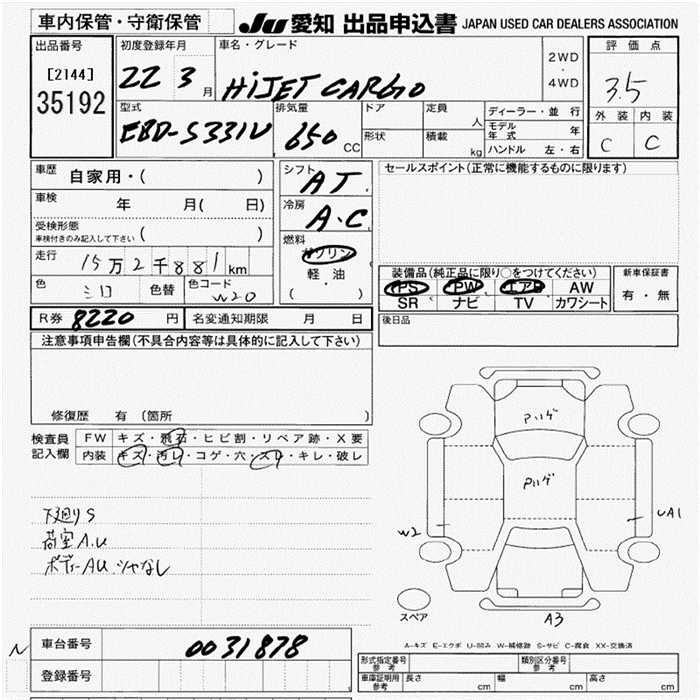 車内保管・守衛保管
JU 愛知 出品申込書 JAPAN USED CAR DEALERS ASSOCIATION
出品番号
[2144]
35192
初度登録年月
22 3 月
車名・グレード
HiJET CARGO
2WD
・
4WD
評価点
3.5
外装 内装
C C
型式
EBD-S331V
排気量
650 CC
ドア
形状
定員 人
積載 kg
ディーラー・並行
モデル年式 年
ハンドル 左・右
車歴 自家用・( )
車検 年 月( 日)
受検形態
車検付きのみ記入して下さい ( )
走行 15万2千881km
色 シロ 色替 色コード W20
シフト AT
冷房 A・C
燃料
ガソリン
軽油
( ・ )
セールスポイント(正常に機能するものに限ります)
装備品(純正品に限り○をつけてください)
PS PW エアB AW
SR ナビ TV カワシート
新車保証書
有・無
R券 8220 円 名変通知期限 月 日
後日品
注意事項申告欄(不具合内容等は具体的に記入して下さい)
修復歴 有(箇所 )
検査員記入欄
FW キズ・飛石・ヒビ割・リペア跡・X要
内装 キズ・汚レ・コゲ・穴・スレ・キレ・破レ
下廻りS
荷室A.U
ボディーAU
N
車台番号 0031878
登録番号
W2
UA1
A3
スペア
A-キズ E-エクボ U-凹み W-補修跡 S-サビ C-腐食 XX-交換済
形式指定番号 参考
類別区分番号 参考
車庫証明用 参考 長さ cm 幅 cm 高さ cm